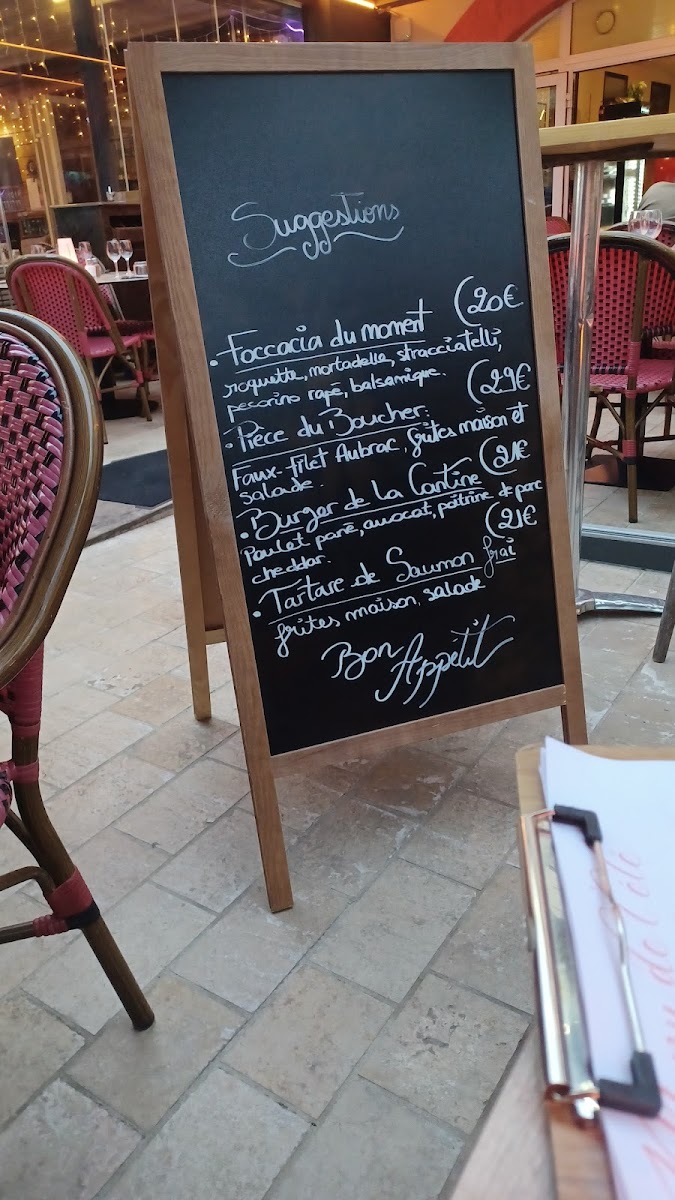 Suggestions
• Foccacia du moment (20€
roquette, mortadelle, stracciatelli,
pecorino rapé, balsamique.
• Pièce du Boucher: (29€
Faux-filet Aubrac, frites maison et
salade.
• Burger de la Cantine (21€
Poulet pané, avocat, poitrine de porc
cheddar.
• Tartare de Saumon frai (21€
frites maison, salade
Bon Appétit
de l'été